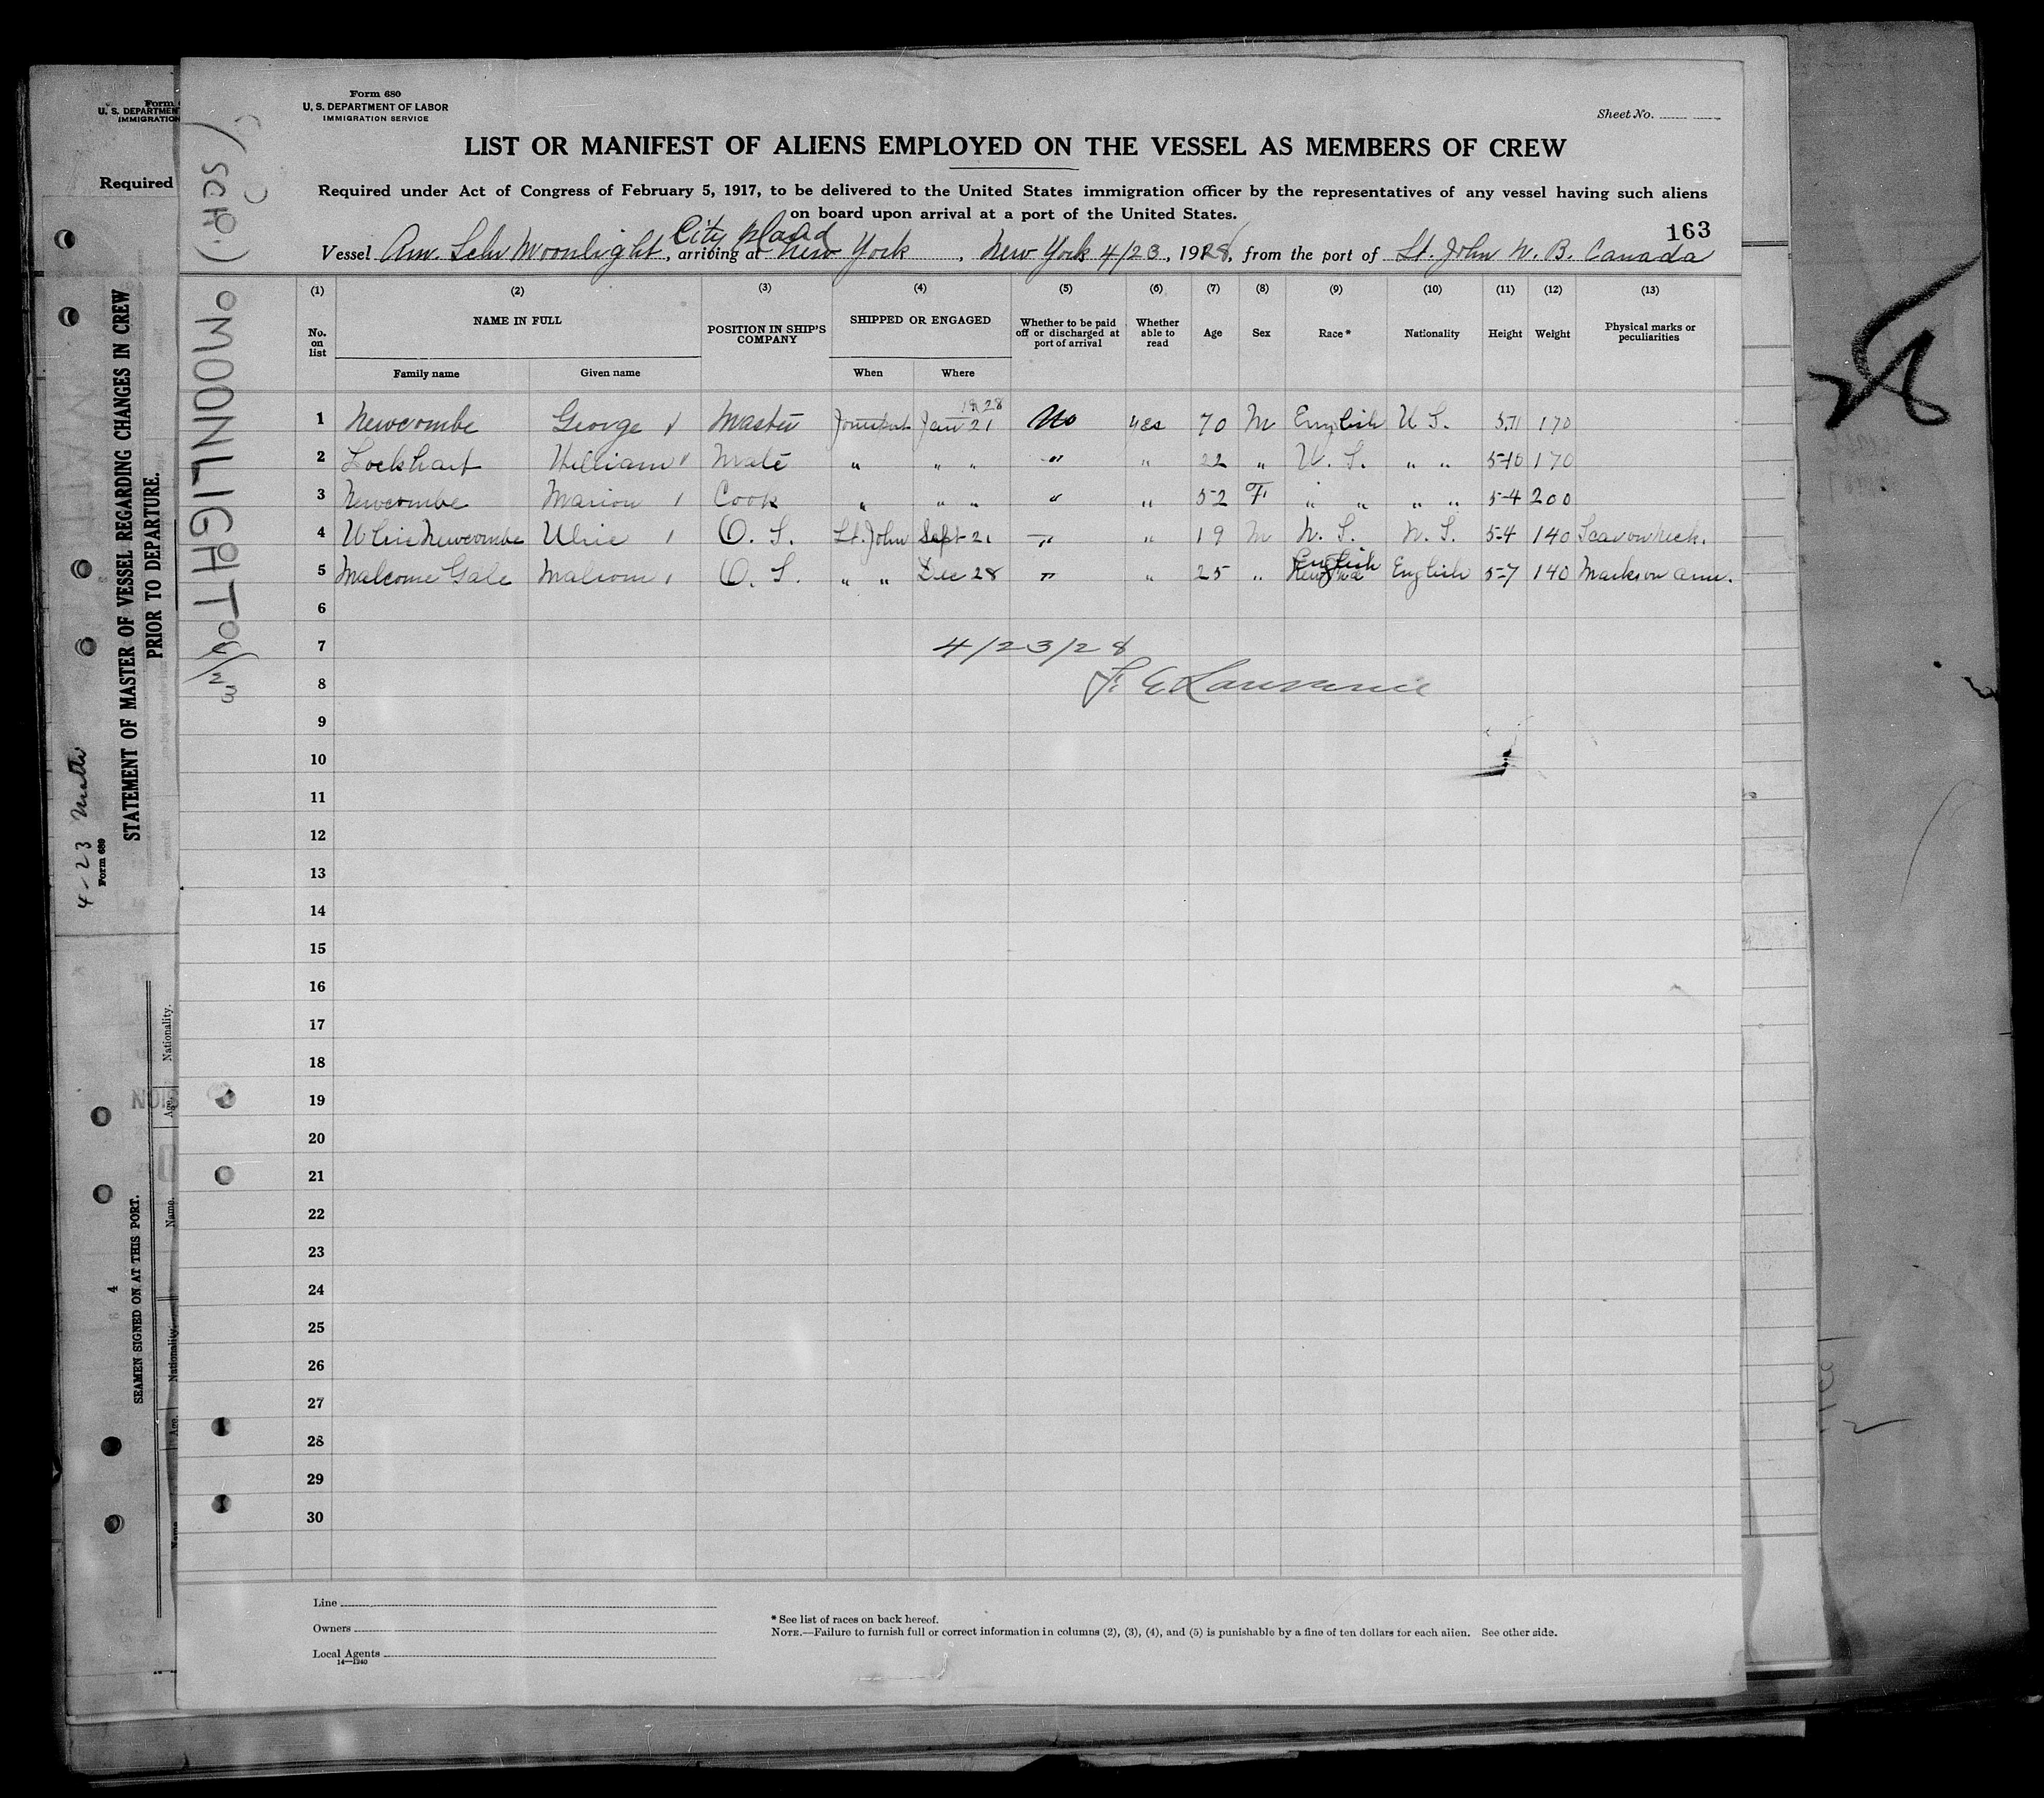 Form 680
U. S. DEPARTMENT OF LABOR
IMMIGRATION SERVICE
Sheet No.
LIST OR MANIFEST OF ALIENS EMPLOYED ON THE VESSEL AS MEMBERS OF CREW
Required under Act of Congress of February 5, 1917, to be delivered to the United States immigration officer by the representatives of any vessel having such aliens
on board upon arrival at a port of the United States.
163
City Island
Vessel Am. Schr Moonlight, arriving at New York, New York 4/23, 1928, from the port of St. John N. B. Canada
(1) (2) (3) (4) (5) (6) (7) (8) (9) (10) (11) (12) (13)
No. on list NAME IN FULL POSITION IN SHIP'S COMPANY SHIPPED OR ENGAGED Whether to be paid off or discharged at port of arrival Whether able to read Age Sex Race* Nationality Height Weight Physical marks or peculiarities
Family name Given name When Where
1928
1 Newcombe George Master Jan 21 No yes 70 M English U S. 5.11 170
2 Lockhart William Mate " " " " " 22 " U. S. " " 5-10 170
3 Newcombe Marion Cook " " " " " 52 F " " " " 5-4 200
4 Ulric Newcombe Ulric O. S. St. John Sept 21 " " 19 M N. S. N. S. 5-4 140 Scar on neck.
English
5 Malcome Gale Malcom O. S. " " Dec 28 " " 25 " English 5-7 140 Marks on arm.
6
7 4/23/28
8 F. E. Lawrence
9
10
11
12
13
14
15
16
17
18
19
20
21
22
23
24
25
26
27
28
29
30
Line
Owners
Local Agents
14—1240
* See list of races on back hereof.
NOTE.—Failure to furnish full or correct information in columns (2), (3), (4), and (5) is punishable by a fine of ten dollars for each alien. See other side.
(SCH.) MOONLIGHT 4/23
Form
U. S. DEPARTMENT
IMMIGRATION
Required
STATEMENT OF MASTER OF VESSEL REGARDING CHANGES IN CREW
PRIOR TO DEPARTURE.
4-23
Form 689
SEAMEN SIGNED ON AT THIS PORT.
Nationality.
Age.
Name.
Nationality.
Age.
Name
28